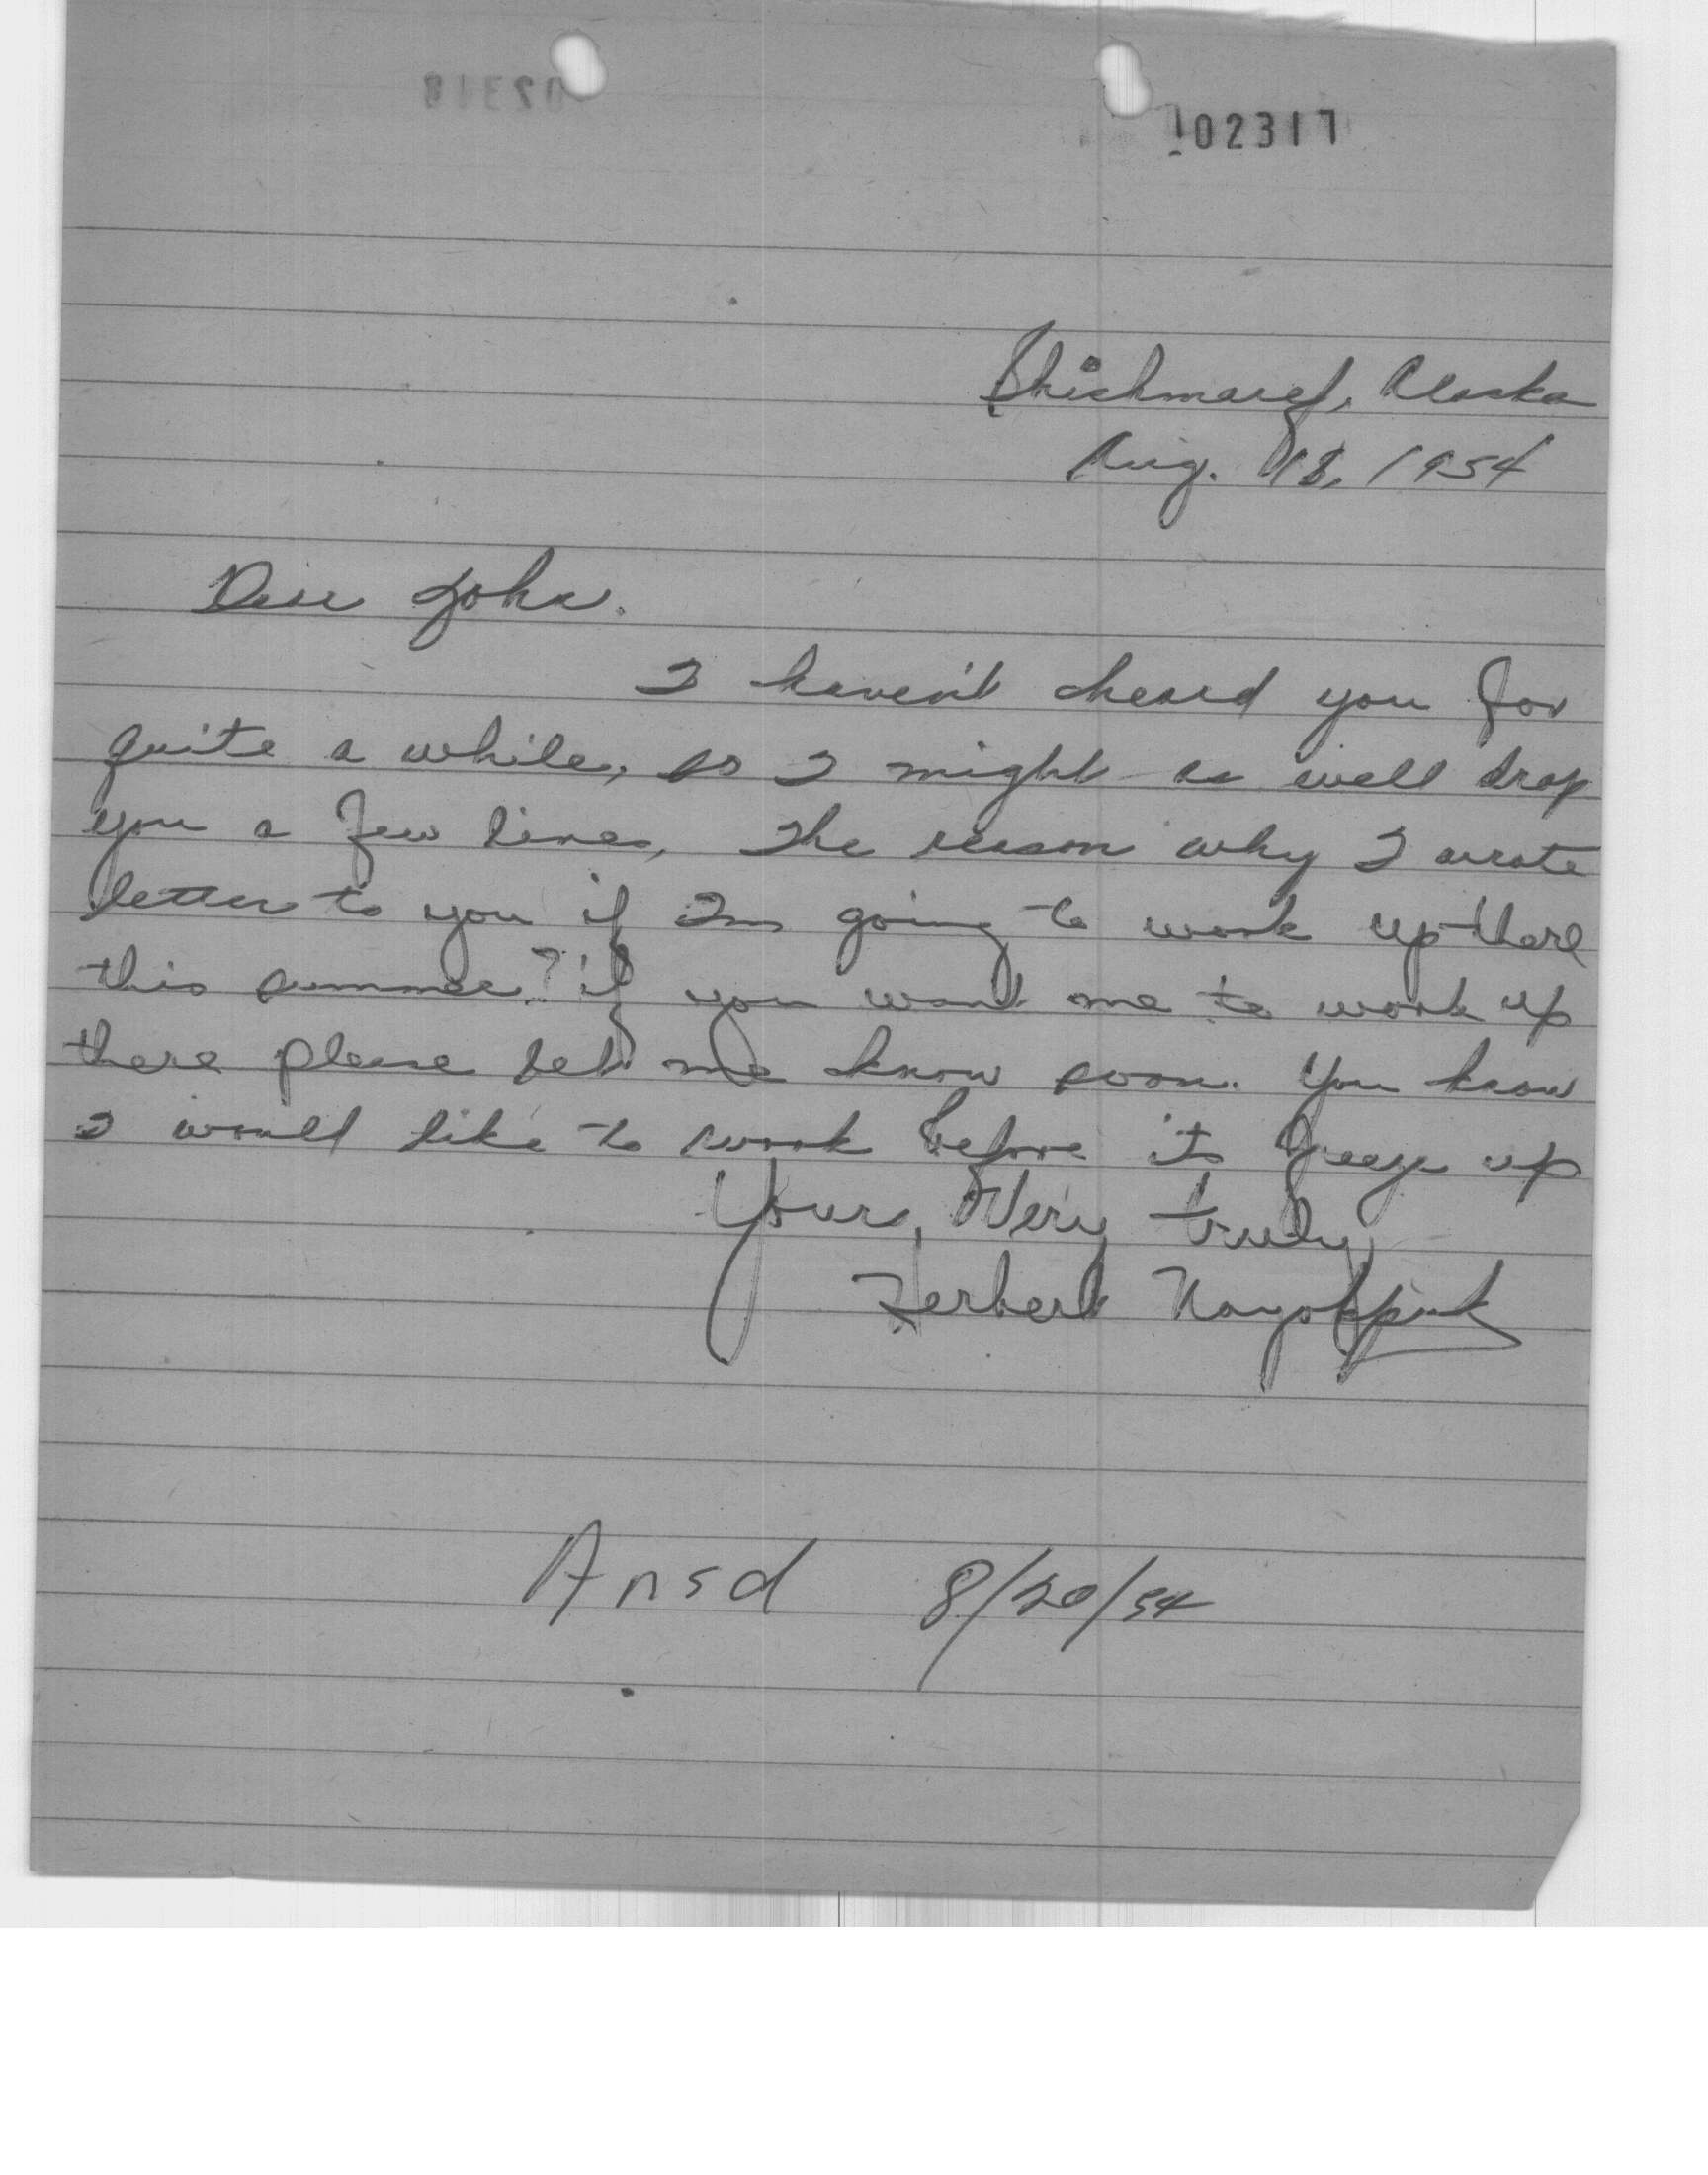 102317
Shishmaref, Alaska
Aug. 18, 1954
Dear John.
I haven't heard you for
quite a while, so I might as well drop
you a few lines, The reason why I wrote
letter to you if Im going to work up there
this summer? if you want me to work up
there please let me know soon. You know
I would like to work before its freeze up
Yours, Very truly
Herbert Nayokpuk
Ansd 8/20/54